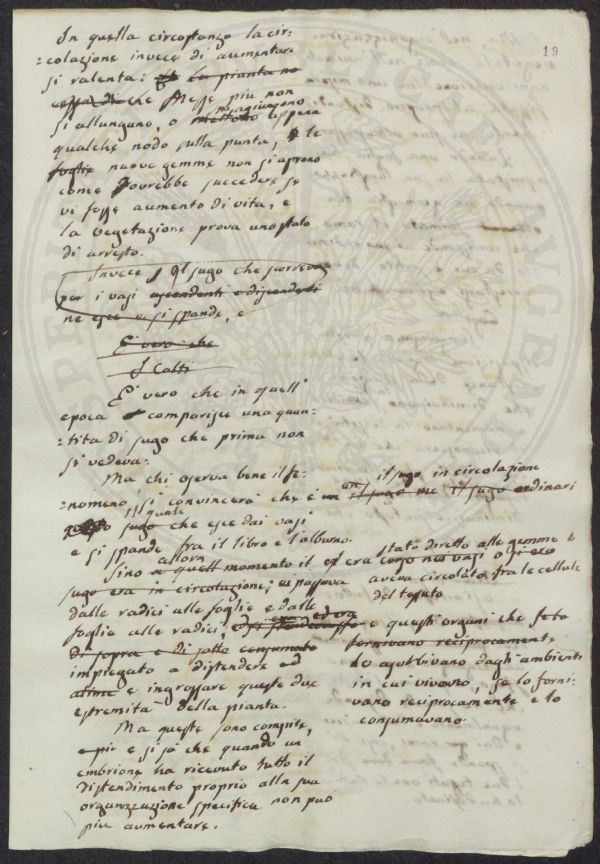 19
In quella circostanza la cir-
=colazione invece di aumentare
si ralenta: La pianta no
che Messe piu non
si allungano, o mettono aggiungono appena
qualche nodo sulla punta, e le
foglie nuove gemme non si aprono
come dovrebbe succedere se
vi fosse aumento di vita, e
la vegetazione prova uno stato
di arresto.
Invece il sugo che scorreva
per i vasi ascendenti e discendenti
ne esce e si spande, e
E' vero che
I Calti
E' vero che in quell'
epoca comparisce una quan-
=tita di sugo che prima non
si vedeva.
Ma chi oserva bene il fe-
=nomeno si convincerà che è un
sugo il quale che esce dai vasi
e si spande fra il libro e l'alburno.
Sino a quell momento allora il
sugo era in circolazione; passava
dalle radici alle foglie e dalle
foglie alle radici, ed era
di sopra e di sotto consumato
impiegato a distendere ed
e ingrossare queste due
estremità della pianta.
Ma queste sono compite,
e più e si sa che quando un
embrione ha ricevuto tutto il
distendimento proprio alla sua
organizzazione specifica non può
piu aumentare.
il sugo in circolazione
il sugo ordinari
era stato diretto alle gemme e
corso nei vasi o
aveva circolato fra le cellule
del tessuto
e questi organi che
fornivano reciprocamente
lo assorbivano dagli ambienti
in cui vivono, se lo forni-
vano reciprocamente e lo
consumavano.